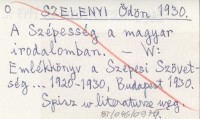 O SZELENYI Ödön 1930.
A Szépesség a magyar
irodalomban. – W:
Emlékkönyv a Szépesi Szövet-
ség... 1920-1930, Budapest 1930.
Spisz w literaturze węg.